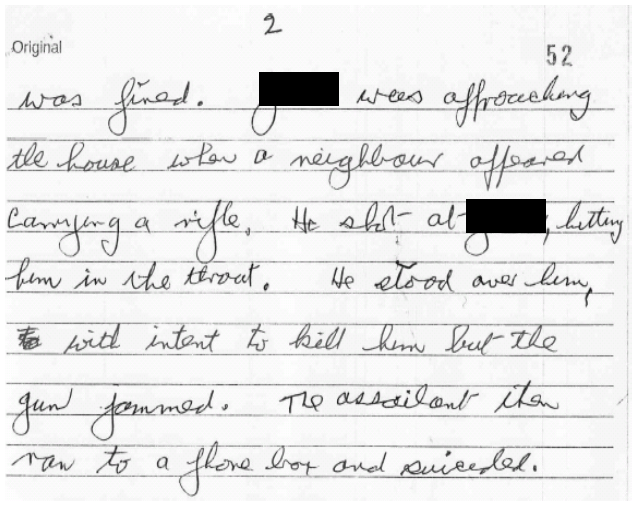 2
Original
52
was fined. was approaching
the house when a neighbour appeared
carrying a rifle. He shot at , hitting
him in the throat. He stood over him,
to with intent to kill him but the
gun jammed. The assailant then
ran to a phone box and suicided.